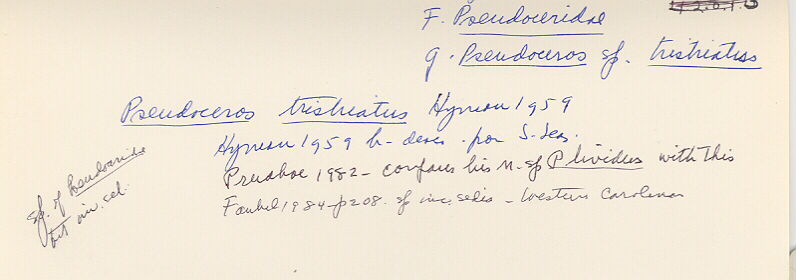 F. Pseudoceridae
g. Pseudoceros sp. tristriatus
Pseudoceros tristriatus Hyman 1959
Hyman 1959 b- descr. por S. Seas.
Prudhoe 1982 - compares his n. sp P lividus with this
Faubel 1984 - p208. sp inc. sedis - Western Carolinas
sp. of Pseudoceridae
but inc. sed.